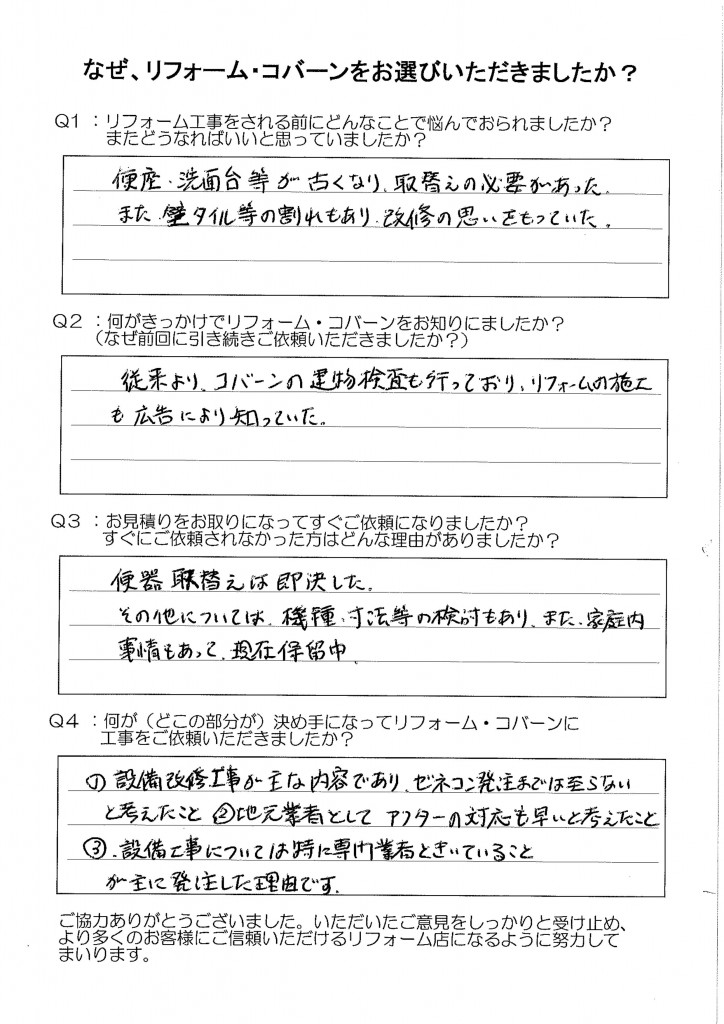 なぜ、リフォーム・コバーンをお選びいただきましたか？
Q1：リフォーム工事をされる前にどんなことで悩んでおられましたか？
またどうなればいいと思っていましたか？
便座・洗面台等が古くなり、取替えの必要があった。
また、壁タイル等の割れもあり、改修の思いをもっていた。
Q2：何がきっかけでリフォーム・コバーンをお知りにましたか？
（なぜ前回に引き続きご依頼いただきましたか？）
従来より、コバーンの建物検査も行っており、リフォームの施工
も広告により知っていた。
Q3：お見積りをお取りになってすぐご依頼になりましたか？
すぐにご依頼されなかった方はどんな理由がありましたか？
便器取替えは即決した。
その他については、機種・寸法等の検討もあり、また、家庭内
事情もあって、現在保留中、
Q4：何が（どこの部分が）決め手になってリフォーム・コバーンに
工事をご依頼いただきましたか？
①設備改修工事が主な内容であり、ゼネコン発注までは至らない
と考えたこと ②地元業者として アフターの対応も早いと考えたこと
③、設備工事については特に専門業者ときいていること
が主に発注した理由です。
ご協力ありがとうございました。いただいたご意見をしっかりと受け止め、
より多くのお客様にご信頼いただけるリフォーム店になるように努力して
まいります。